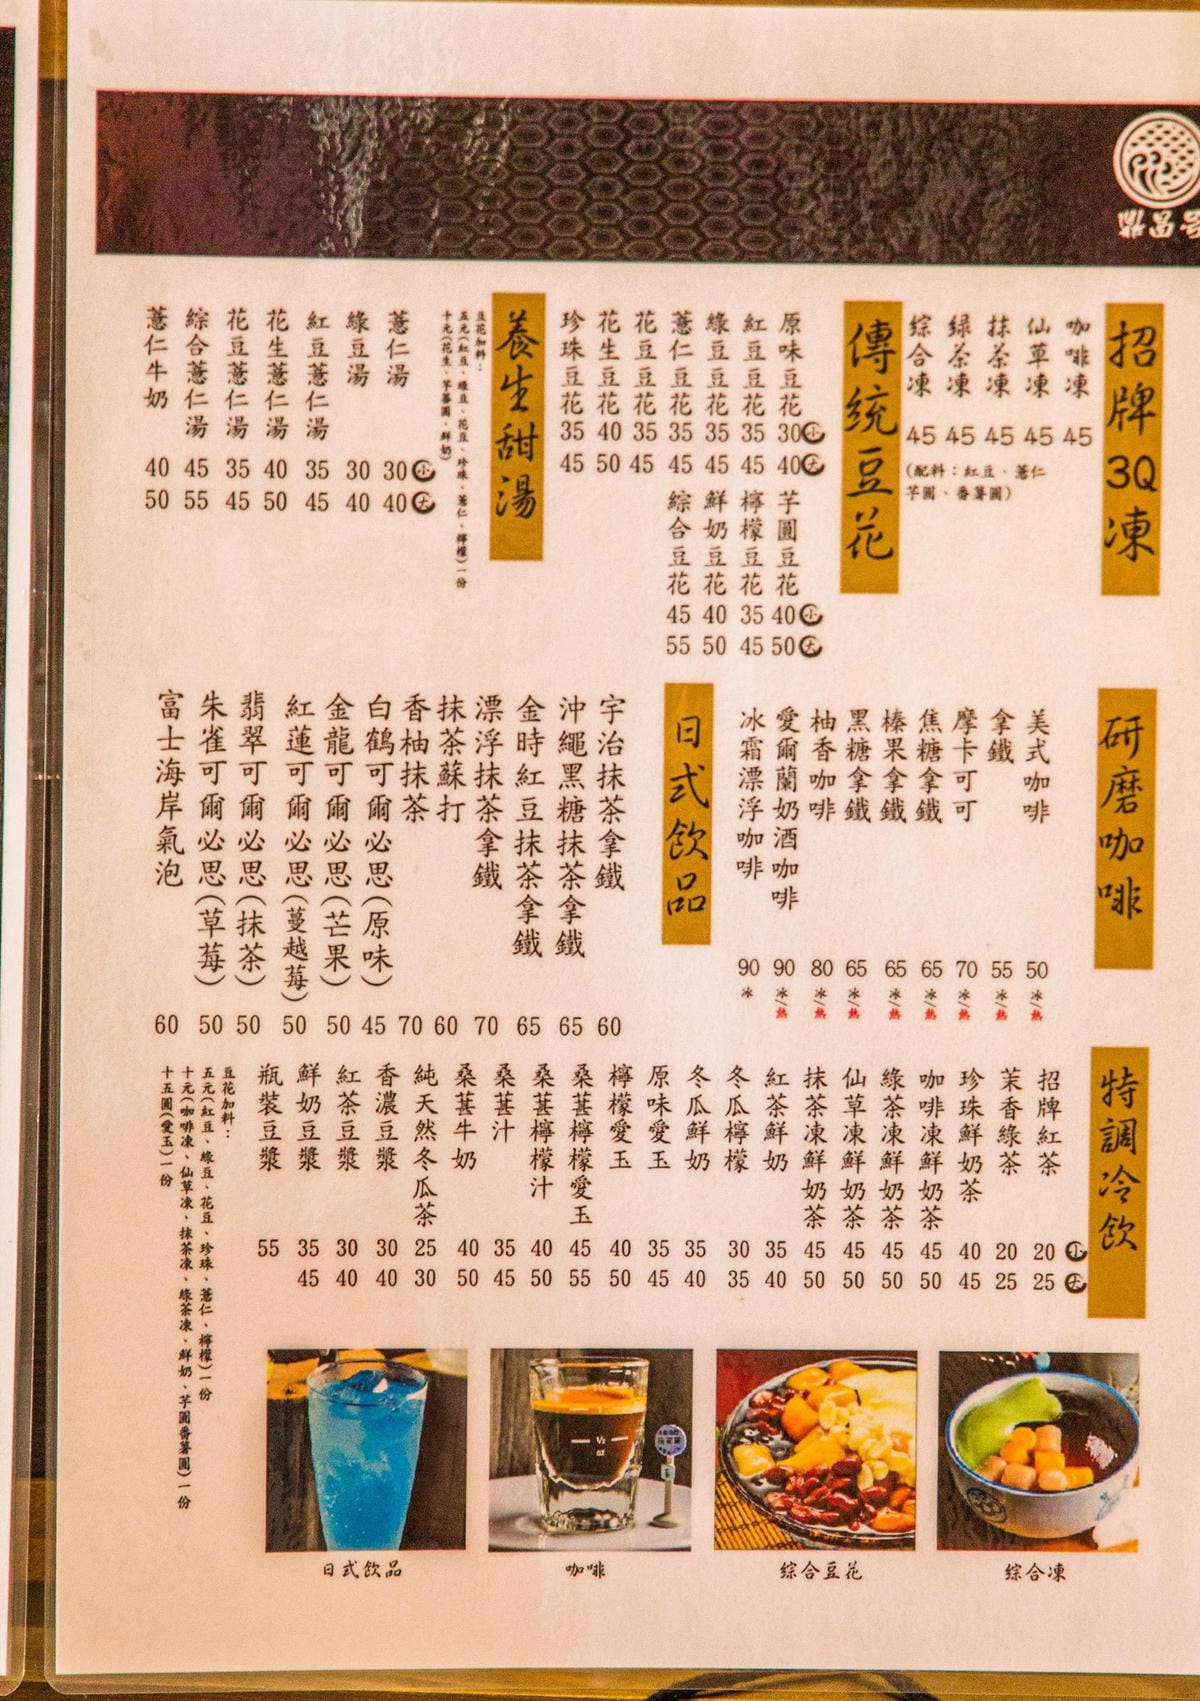 招牌3Q凍
咖啡凍 45
仙草凍 45
抹茶凍 45
绿茶凍 45
综合凍 45
(配料：紅豆、薏仁
芋圓、番薯圓)
傳統豆花
小
大
原味豆花 30 40
紅豆豆花 35 45
綠豆豆花 35 45
薏仁豆花 35 45
花豆豆花 35 45
花生豆花 40 50
珍珠豆花 35 45
小
大
芋圓豆花 40 50
檸檬豆花 35 45
鮮奶豆花 40 50
綜合豆花 45 55
養生甜湯
豆花加料：
五元(紅豆、綠豆、花豆、珍珠、薏仁、檸檬)一份
十元(花生、芋蕃圓、鮮奶)
小
大
薏仁湯 30 40
綠豆湯 30 40
紅豆薏仁湯 35 45
花生薏仁湯 40 50
花豆薏仁湯 35 45
綜合薏仁湯 45 55
薏仁牛奶 40 50
研磨咖啡
美式咖啡 50 冰/熱
拿鐵 55 冰/熱
摩卡可可 70 冰/熱
焦糖拿鐵 65 冰/熱
榛果拿鐵 65 冰/熱
黑糖拿鐵 65 冰/熱
柚香咖啡 80 冰/熱
愛爾蘭奶酒咖啡 90 冰/熱
冰霜漂浮咖啡 90 冰
日式飲品
宇治抹茶拿鐵 60
沖繩黑糖抹茶拿鐵 65
金時紅豆抹茶拿鐵 65
漂浮抹茶拿鐵 70
抹茶蘇打 60
香柚抹茶 70
白鶴可爾必思(原味) 45
金龍可爾必思(芒果) 50
紅蓮可爾必思(蔓越莓) 50
翡翠可爾必思(抹茶) 50
朱雀可爾必思(草莓) 50
富士海岸氣泡 60
特調冷飲
小
大
招牌紅茶 20 25
茉香綠茶 20 25
珍珠鮮奶茶 40 45
咖啡凍鮮奶茶 45 50
綠茶凍鮮奶茶 45 50
仙草凍鮮奶茶 45 50
抹茶凍鮮奶茶 45 50
紅茶鮮奶 35 40
冬瓜檸檬 30 35
冬瓜鮮奶 35 40
原味愛玉 35 45
檸檬愛玉 40 50
桑葚檸檬愛玉 45 55
桑葚檸檬汁 40 50
桑葚汁 35 45
桑葚牛奶 40 50
純天然冬瓜茶 25 30
香濃豆漿 30 40
紅茶豆漿 30 40
鮮奶豆漿 35 45
瓶裝豆漿 55
豆花加料：
五元(紅豆、綠豆、花豆、珍珠、薏仁、檸檬)一份
十元(咖啡凍、仙草凍、抹茶凍、綠茶凍、鮮奶、芋圓番薯圓)一份
十五圓(愛玉)一份
日式飲品
咖啡
綜合豆花
綜合凍